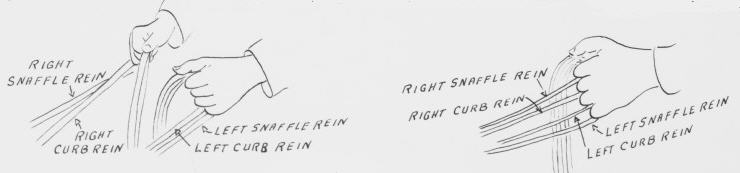 RIGHT
SNAFFLE REIN
RIGHT
CURB REIN
LEFT SNAFFLE REIN
LEFT CURB REIN
RIGHT SNAFFLE REIN
RIGHT CURB REIN
LEFT SNAFFLE REIN
LEFT CURB REIN